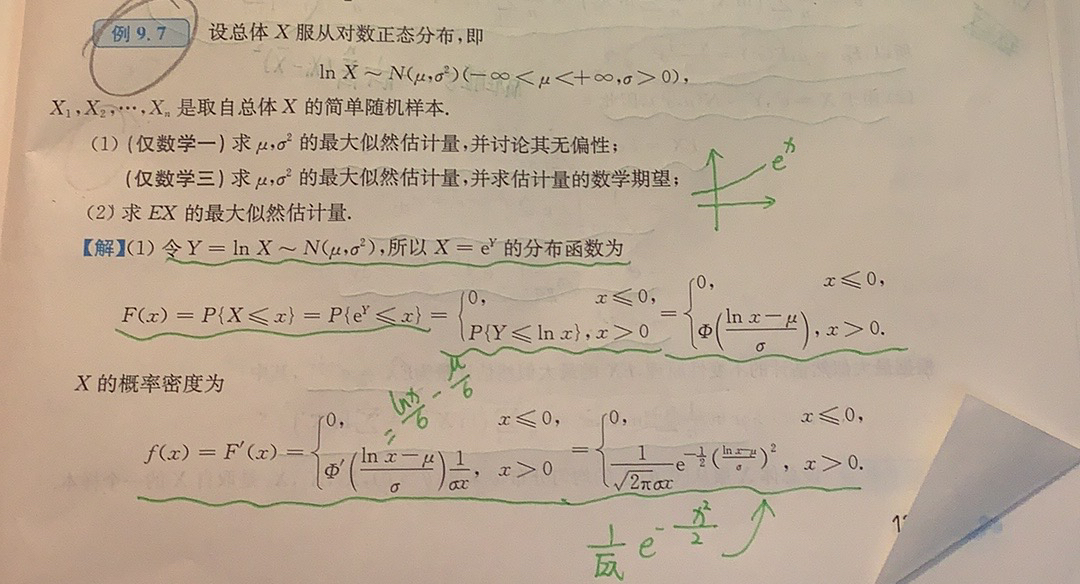 例 9.7 设总体 X 服从对数正态分布,即
ln X ~ N(μ,σ²)(−∞<μ<+∞,σ>0),
X₁,X₂,…,Xₙ 是取自总体 X 的简单随机样本.
(1) (仅数学一) 求 μ,σ² 的最大似然估计量,并讨论其无偏性;
(仅数学三) 求 μ,σ² 的最大似然估计量,并求估计量的数学期望;
eˣ
(2) 求 EX 的最大似然估计量.
【解】(1) 令 Y = ln X ~ N(μ,σ²),所以 X = e^Y 的分布函数为
F(x) = P{X⩽x} = P{e^Y⩽x} = {0, x⩽0, P{Y⩽ln x}, x>0 = {0, x⩽0, Φ((ln x−μ)/σ), x>0.
X 的概率密度为
= lnx/6 − μ/6
f(x) = F′(x) = {0, x⩽0, Φ′((ln x−μ)/σ) 1/(σx), x>0 = {0, x⩽0, 1/(√2π σx) e^(−1/2((ln x−μ)/σ)²), x>0.
1/√2π e^(−x²/2)